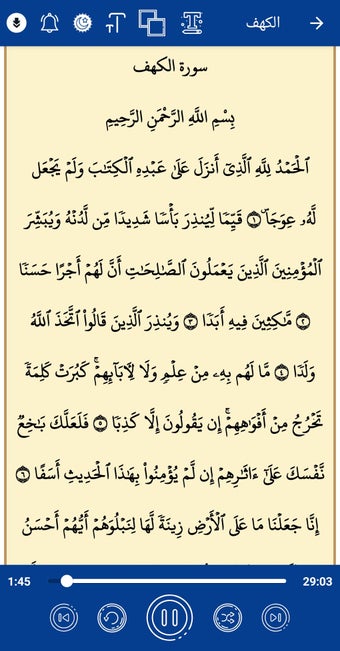 الكهف
سورة الكهف
بِسْمِ اللَّهِ الرَّحْمَٰنِ الرَّحِيمِ
ٱلْحَمْدُ لِلَّهِ ٱلَّذِىٓ أَنزَلَ عَلَىٰ عَبْدِهِ ٱلْكِتَٰبَ وَلَمْ يَجْعَل
لَّهُۥ عِوَجَاۜ ١ قَيِّمًا لِّيُنذِرَ بَأْسًا شَدِيدًا مِّن لَّدُنْهُ وَيُبَشِّرَ
ٱلْمُؤْمِنِينَ ٱلَّذِينَ يَعْمَلُونَ ٱلصَّٰلِحَٰتِ أَنَّ لَهُمْ أَجْرًا حَسَنًا
٢ مَّٰكِثِينَ فِيهِ أَبَدًا ٣ وَيُنذِرَ ٱلَّذِينَ قَالُوا۟ ٱتَّخَذَ ٱللَّهُ
وَلَدًا ٤ مَّا لَهُم بِهِۦ مِنْ عِلْمٍ وَلَا لِءَابَآئِهِمْ ۚ كَبُرَتْ كَلِمَةً
تَخْرُجُ مِنْ أَفْوَٰهِهِمْ ۚ إِن يَقُولُونَ إِلَّا كَذِبًا ٥ فَلَعَلَّكَ بَٰخِعٌ
نَّفْسَكَ عَلَىٰٓ ءَاثَٰرِهِمْ إِن لَّمْ يُؤْمِنُوا۟ بِهَٰذَا ٱلْحَدِيثِ أَسَفًا ٦
إِنَّا جَعَلْنَا مَا عَلَى ٱلْأَرْضِ زِينَةً لَّهَا لِنَبْلُوَهُمْ أَيُّهُمْ أَحْسَنُ
1:45 29:03